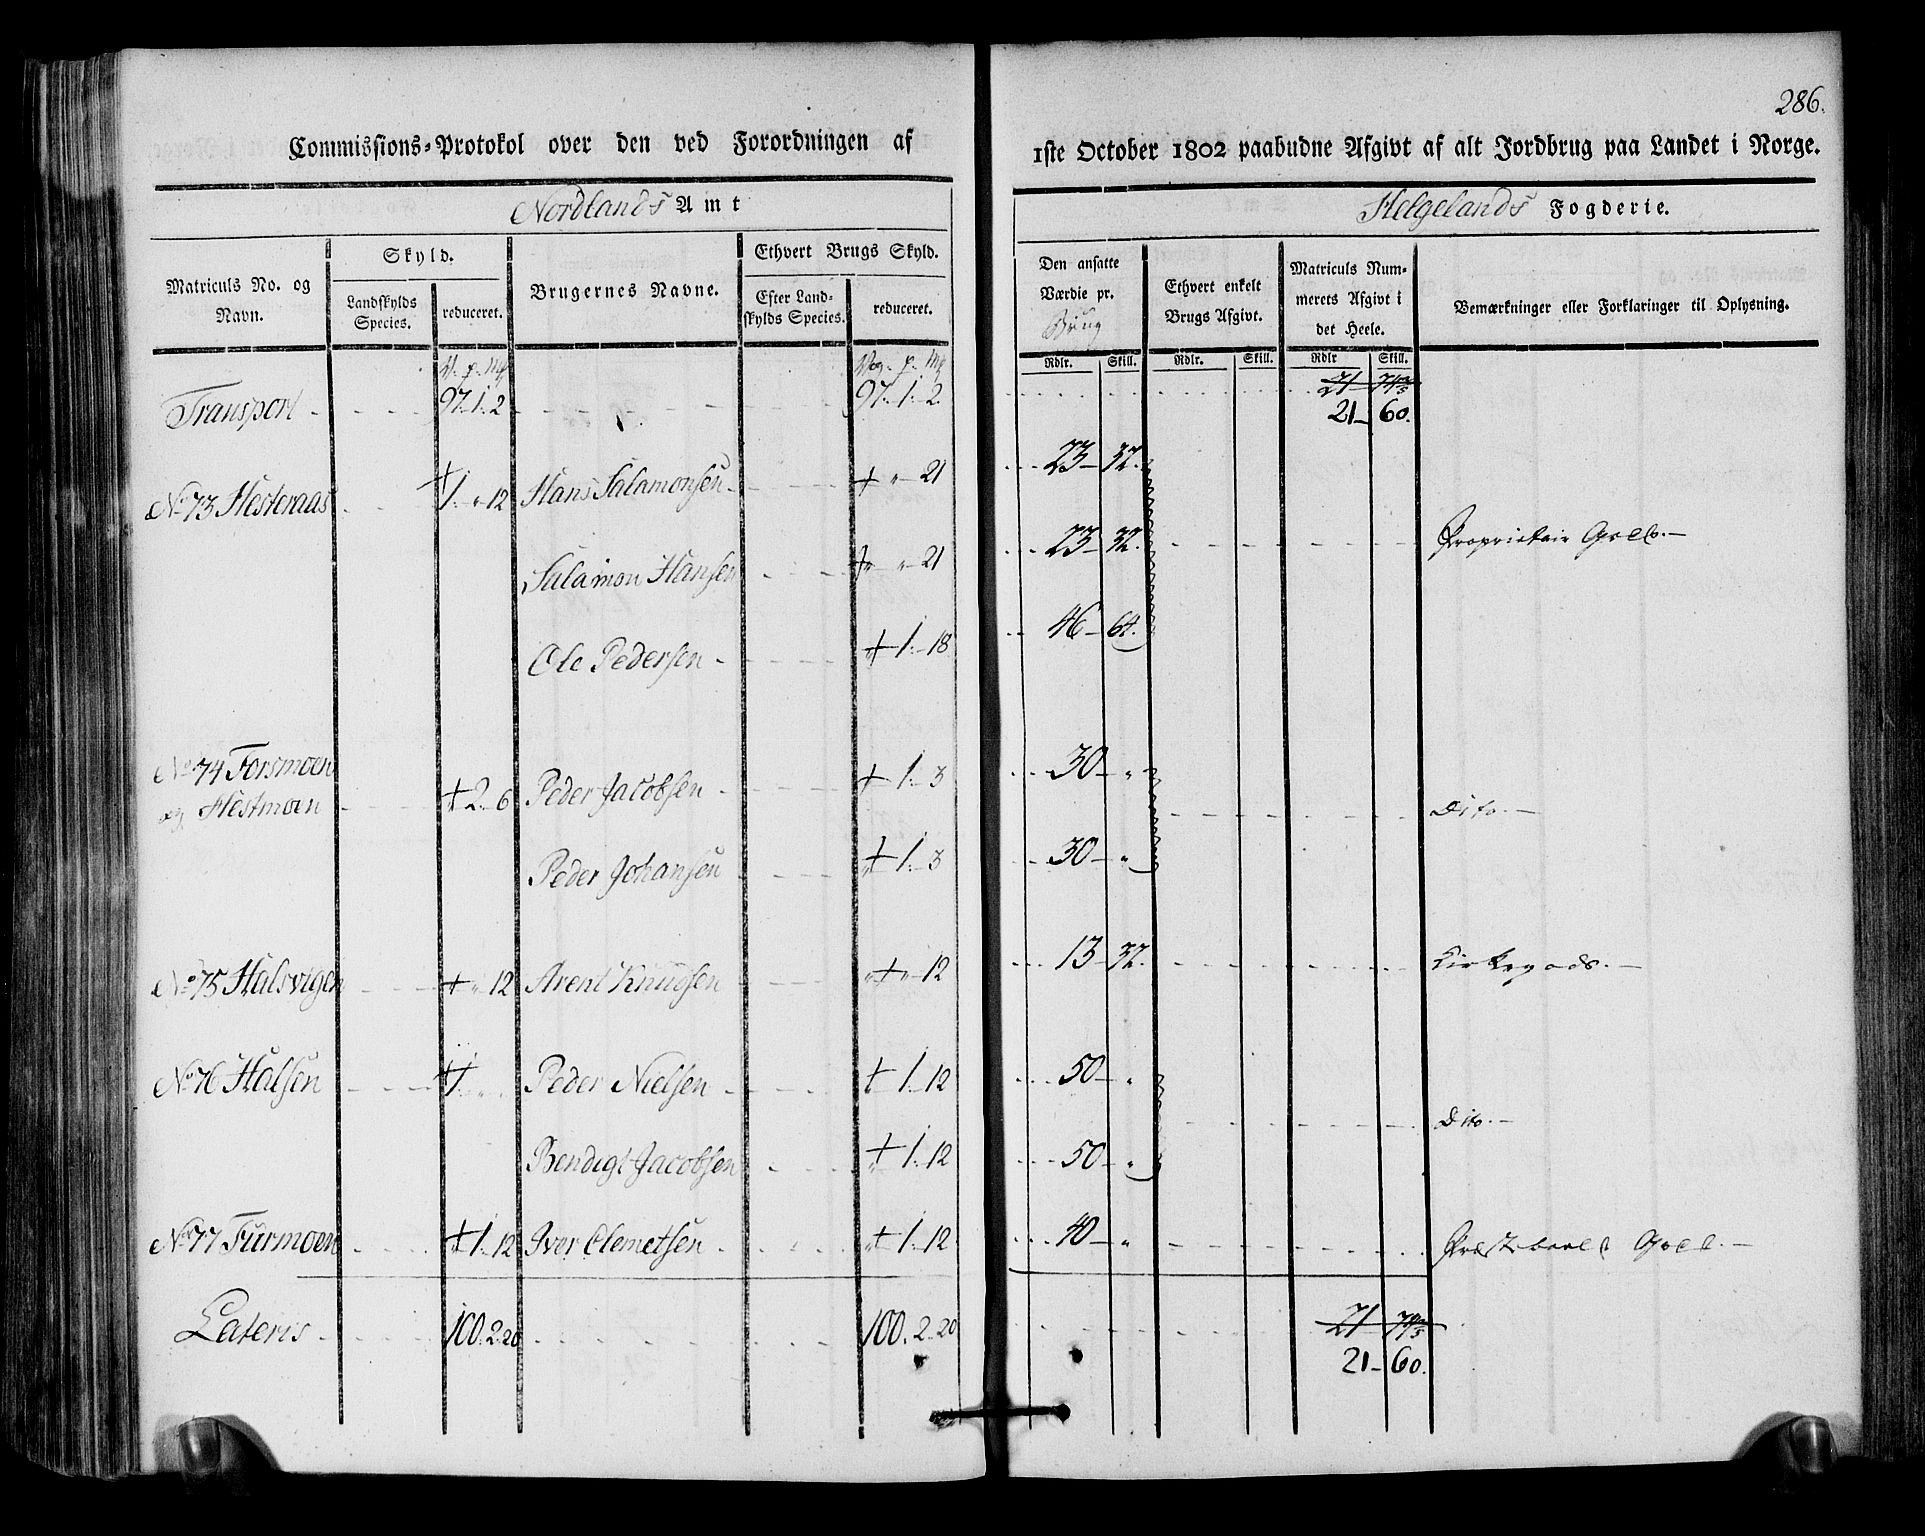 286.
Commissions-Protokol over den ved Forordningen af 1ste October 1802 paabudne Afgivt af alt Jordbrug paa Landet i Norge.
Nordlands Amt
Helgelands Fogderie.
Matriculs No. og Navn.
Skyld.
Landskylds Species.
reduceret.
Brugernes Navne.
Ethvert Brugs Skyld.
Efter Landskylds Species.
reduceret.
Den ansatte Værdie pr. Brug
Rdlr. Skill.
Ethvert enkelt Brugs Afgivt.
Rdlr. Skill.
Matriculs Nummerets Afgivt i det Heele.
Rdlr Skill.
Bemærkninger eller Forklaringer til Oplysning.
Transport 97. 1. 2 97. 1. 2. 21 60.
No 73 Hesteraas 1. " 12 Hans Salamonsen " 21 23 32.
Salamon Hansen " 21 23 32. Proprietair Gods.
Ole Pedersen 1. 18 46 64.
No 74 Forsmoen
og Hestmoen 2. 6 Peder Jacobsen 1. 3 30 " Dito.
Peder Johansen 1. 3 30 "
No 75 Halsvigen " 12 Arent Knudsen " 12 13 32. Kirkegods.
No 76 Halsen 1. " Peder Nielsen 1. 12 50 "
Dito.
Bendigt Jacobsen 1. 12 50 "
No 77 Furmoen 1. 12 Iver Clemetsen 1. 12 40 " Præsteboels Gods.
Lateris 100. 2. 20 100. 2. 20 21 60.